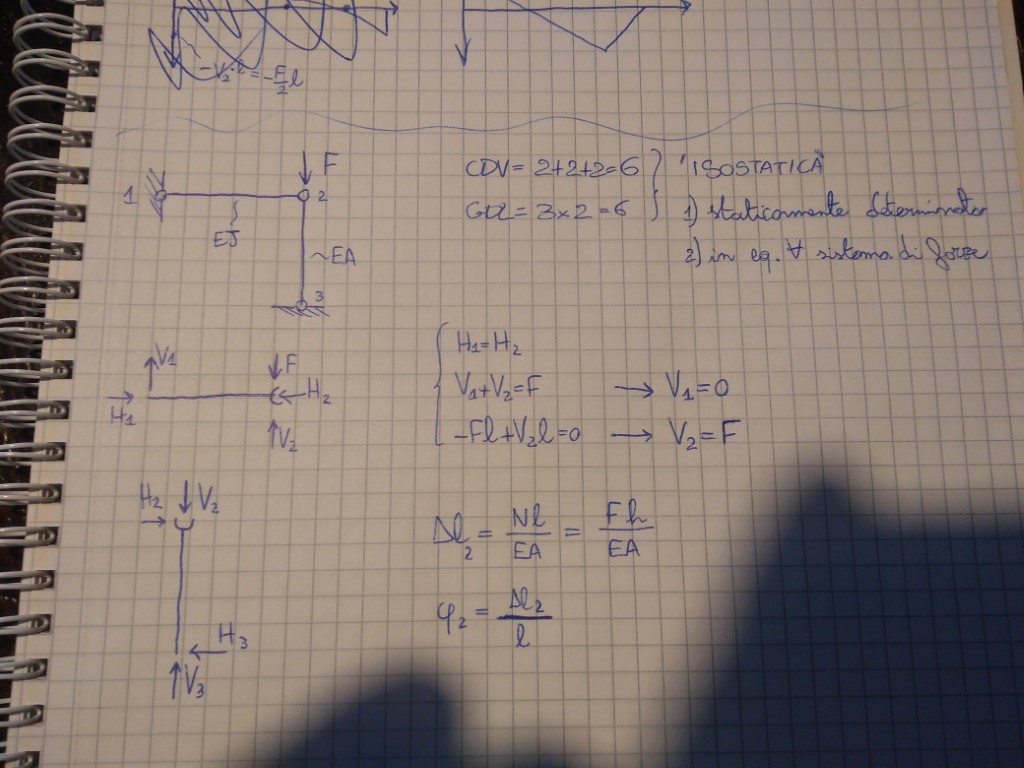 -V₂·2 = -F/2 l
F
1
2
EJ
~EA
3
CDV = 2+2+2=6 } "ISOSTATICA"
GDL = 3×2=6 } 1) staticamente determinata
2) in eq. ∀ sistema di forze
V1
F
H1
H2
V2
H1=H2
V1+V2=F → V1=0
-Fl+V2l=0 → V2=F
H2
V2
H3
V3
Δl₂ = Nl/EA = Fh/EA
φ₂ = Δl₂/l